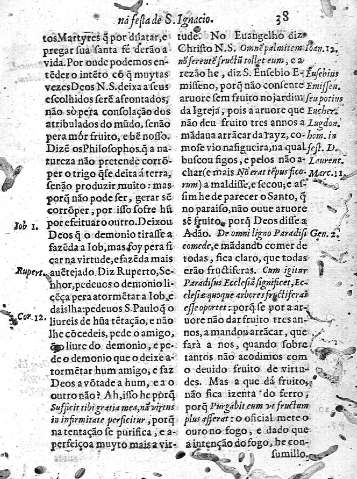 na festa de S. Ignacio. 38
tos Martyres q̃ por d'statar, e
pregar sua santa fé derão a
vida. Por onde podemos en-
tẽder o intẽto cõ q̃ muytas
vezes Deos N. S. deixa a seus
escolhidos serẽ afrontados,
não so pera consolação dos
atribulados do mũdo, senão
pera mòr fruito, e bẽ nosso.
Dizẽ os Philosophos. q̃ a
natureza não pretende corrõ-
per o trigo q̃ se deita á terra,
senão produzir muito: mas
porq̃ não pode ser, gerar sẽ
corrõper, por isso sofre hũ
por efeituar o outro. Deixou
Deos q̃ o demonio tirasse a
fazẽda a Iob, mas foy pera si
car na virtude, e fazẽda mais
auẽtejado. Diz Ruperto, Se-
nhor, pedeuos o demonio li-
cẽça pera atormẽtar a Iob, e
dais lha: pedeuos S. Paulo q̃ o
liureis de hũa tẽtação, e não
lhe cõcedeis, pede o amigo,
o liure do demonio, e pe-
de o demonio que o deixe a-
tormẽtar hum amigo, e faz
Deos a võtade a hum, e a o
outro não? Ah, isso he porq̃
Sufficit tibi gratia mea, nã virtus
in infirmitate perficitur, porq̃
na tentação se purifica, e a-
perfeiçoa muyto mais a vir-
tude. No Euangelho diz
Christo N. S. Omnẽ palmitem
nõ ferentẽ fructũ tollet eum, e a
rezão he, diz S. Eusebio E-
misseno, porq̃ não consente
aruore sem fruito no jardim
da Igreja, pois a aruore que
não deu fruito tres annos a
mãdaua arrãcar da rayz, co-
mo se vio na figueira, na qual
buscou figos, e pelos não a-
char (e mais Nõ erat tẽpus fico-
rum) a maldisse, e secou; e as-
sim he de parecer o Santo, q̃
no paraiso, não ouue aruore
sẽ fruito, porq̃ Deos disse a
Adão. De omni ligno Paradisi
comede, e mãdando comer de
todas, fica claro, que todas
erão fructiferas. Cum igitur
Paradisus Ecclesiã significet, Ec-
clesiæ quoque arbores fructiferas
esse oportet: porq̃ se por a ar-
uore não dar fruito tres an-
nos, a mandou arrãcar, que
fará a nos, quando sobre
tantos não acodimos com
o deuido fruito de virtu-
des. Mas a que dá fruito,
não fica izenta do ferro,
porq̃ Purgabit eum vt fructum
plus afferat: o oficial mete o
ouro no fogo, e dado que
a intenção do fogo, he con-
sumillo.
Iob 1.
Rupert.
Cor. 12.
Ioan. 12.
Eusebius
Emissen.
seu potius
Eucher.
Lugdon.
hom. in
fest. D.
Laurent.
Marc. 11
Gen. 2.